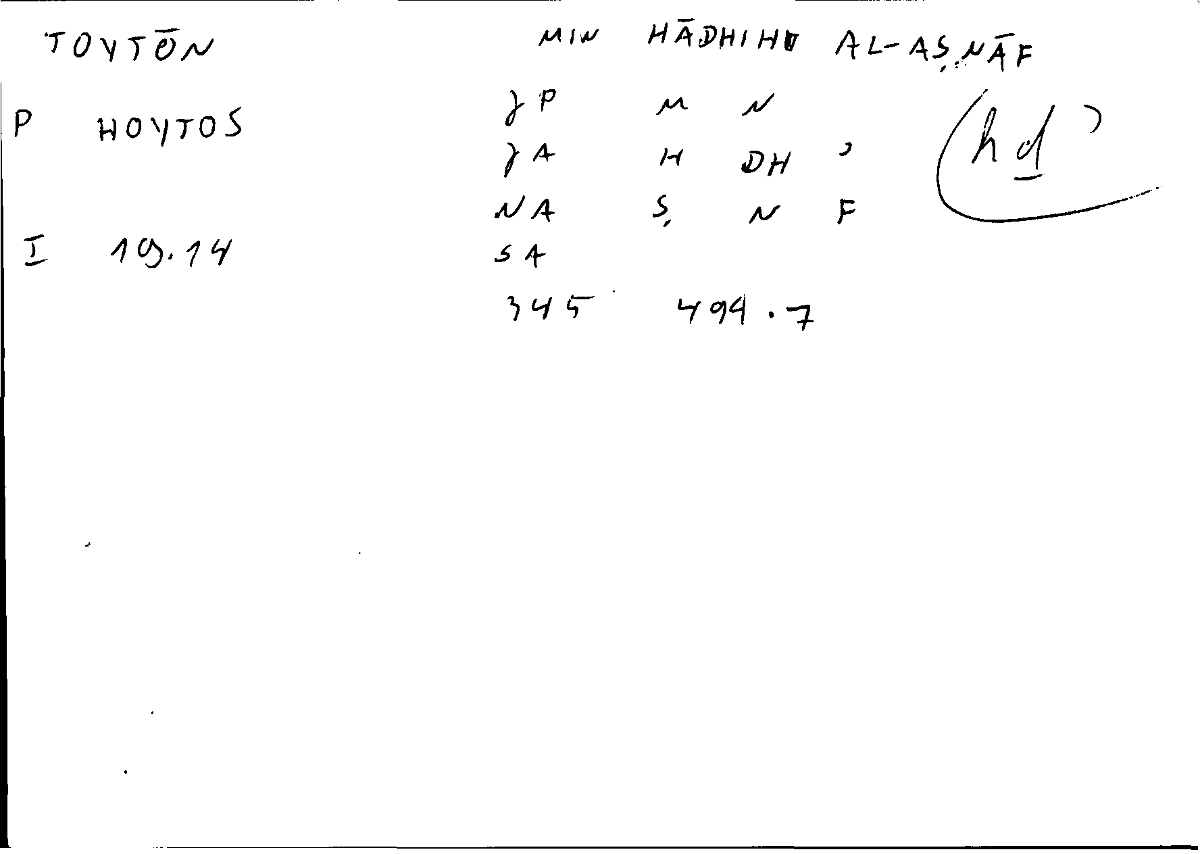 TOYTŌN MIN HĀDHIHI AL-AṢNĀF
JP M N
P HOYTOS
JA H DH ʾ (hḏʾ
NA Ṣ N F
I 19.14
SA
345 494.7